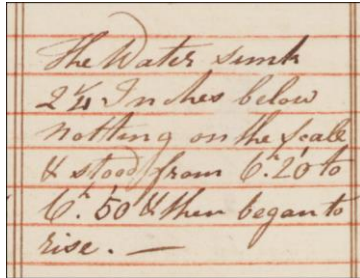 The Water sunk
2¼ Inches below
nothing on the scale
& stood from 6ʰ.20 to
6ʰ.50 & then began to
rise. —